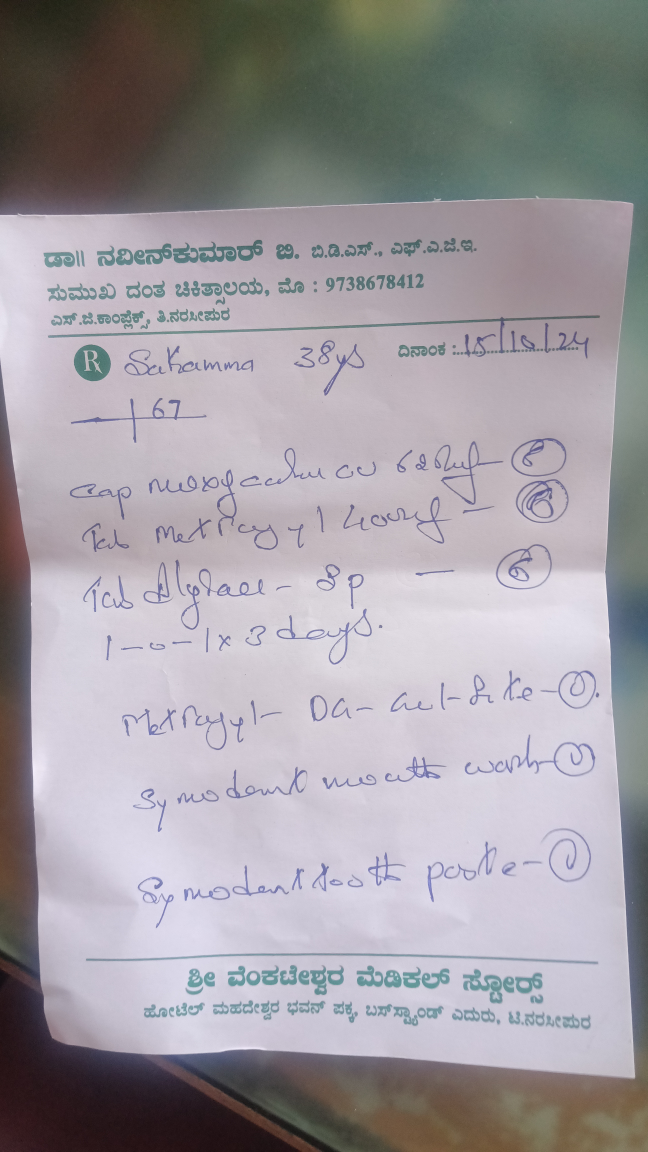 ಡಾ|| ನವೀನ್‌ಕುಮಾರ್ ಬಿ. ಬಿ.ಡಿ.ಎಸ್., ಎಫ್.ಎ.ಜಿ.ಇ.
ಸುಮುಖ ದಂತ ಚಿಕಿತ್ಸಾಲಯ, ಮೊ : 9738678412
ಎಸ್.ಜಿ.ಕಾಂಪ್ಲೆಕ್ಸ್, ತಿ.ನರಸೀಪುರ
Rx Sakamma 38ys ದಿನಾಂಕ : 15/10/24
67
Cap cv 625mg
Tab Metrogyl 400mg - 6
Tab - SP - 6
1-0-1 x 3 days.
Metrogyl - DG - - 1.
Symodent mouth wash - 1
Symodent tooth paste - 1
ಶ್ರೀ ವೆಂಕಟೇಶ್ವರ ಮೆಡಿಕಲ್ ಸ್ಟೋರ್ಸ್
ಹೋಟೆಲ್ ಮಹದೇಶ್ವರ ಭವನ್ ಪಕ್ಕ, ಬಸ್‌ಸ್ಟ್ಯಾಂಡ್ ಎದುರು, ಟಿ.ನರಸೀಪುರ